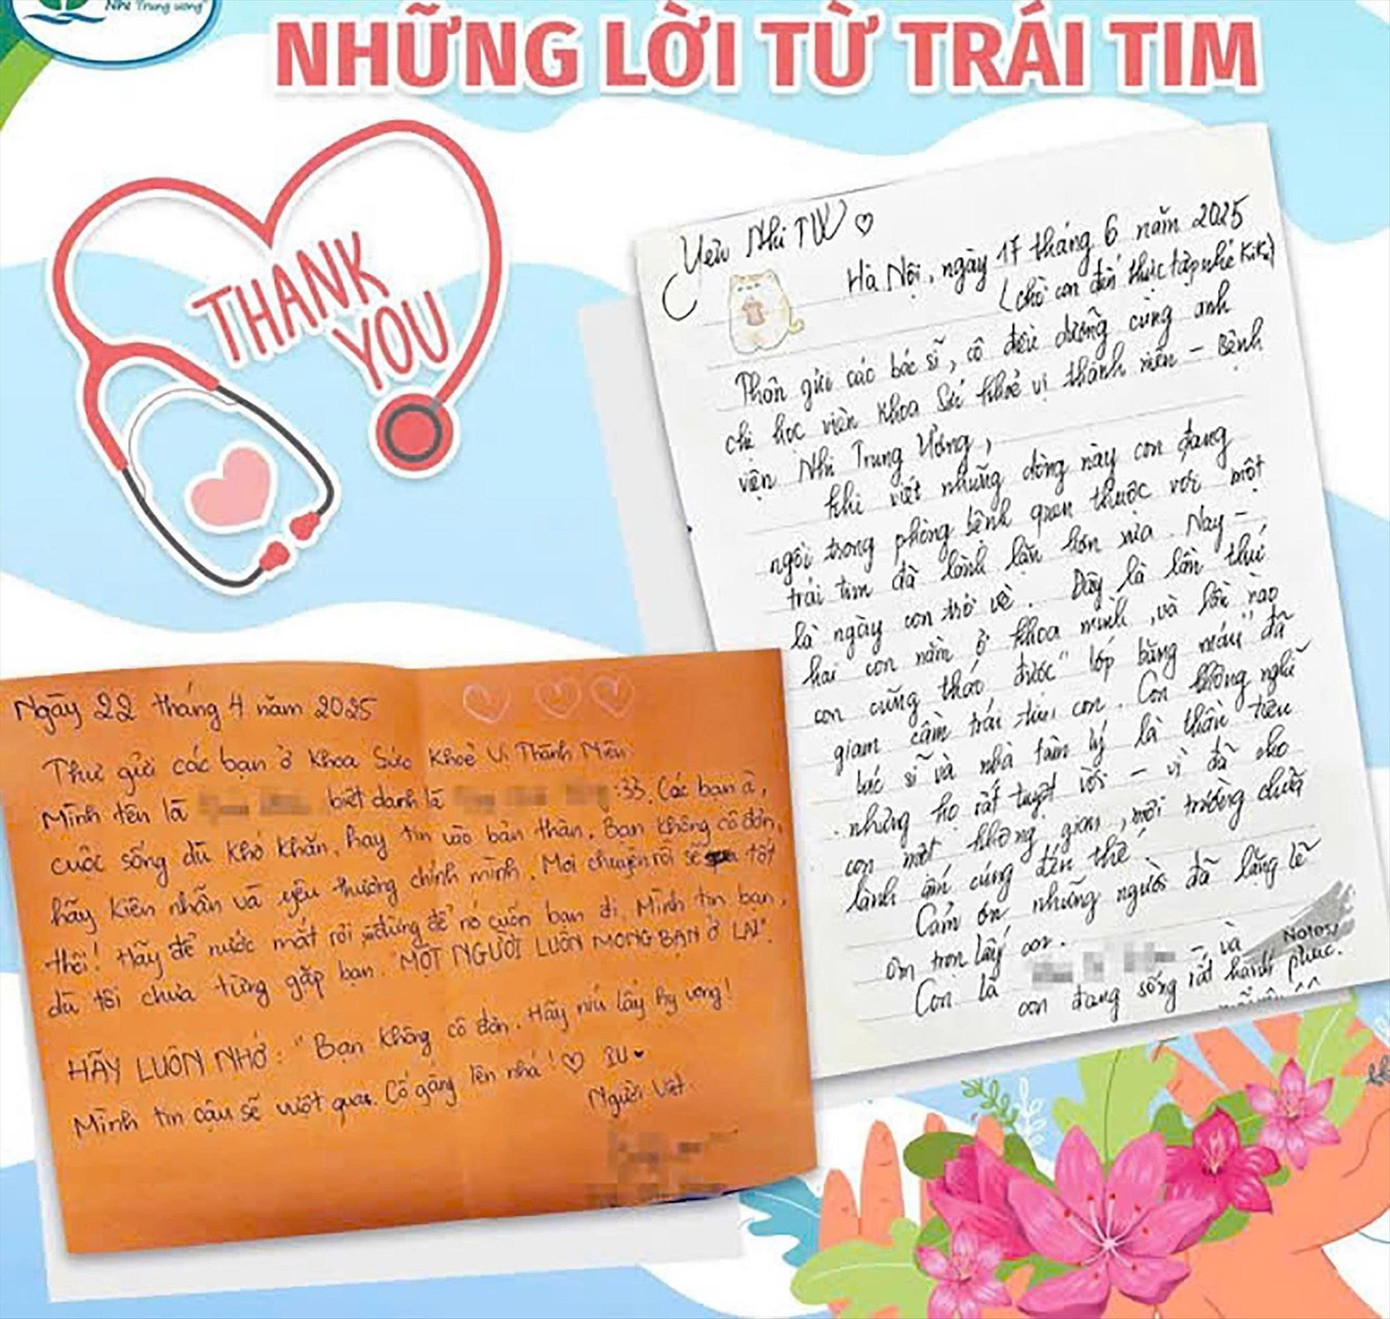 Nhi Trung ương
NHỮNG LỜI TỪ TRÁI TIM
THANK
YOU
Yêu Nhi TW ♡
Hà Nội, ngày 17 tháng 6 năm 2025
(chờ con đến thực tập nhé Kiki)
Thân gửi các bác sĩ, cô điều dưỡng cùng anh
chị học viên khoa Sức khoẻ vị thành niên - Bệnh
viện Nhi Trung Ương,
Khi viết những dòng này con đang
ngồi trong phòng bệnh quen thuộc với một
trái tim đã lành lặn hơn xưa. Nay -
là ngày con trở về. Đây là lần thứ
hai con nằm ở khoa mình, và lần nào
con cũng tháo được "lớp băng máu" đã
giam cầm trái tim con. Con không nghĩ
bác sĩ và nhà tâm lý là thần tiên
nhưng họ rất tuyệt vời - vì đã cho
con một không gian, môi trường chữa
lành ấm cúng đến thế!
Cảm ơn những người đã lặng lẽ
ôm trọn lấy con.
Con là - và
con đang sống rất hạnh phúc.
Notes
Ngày 22 tháng 4 năm 2025
Thư gửi các bạn ở khoa Sức Khoẻ Vị Thành Niên
Mình tên là biệt danh là :33. Các bạn à,
cuộc sống dù khó khăn, hãy tin vào bản thân. Bạn không cô đơn,
hãy kiên nhẫn và yêu thương chính mình. Mọi chuyện rồi sẽ tốt
thôi! Hãy để nước mắt rơi, đừng để nó cuốn bạn đi. Mình tin bạn,
dù tôi chưa từng gặp bạn. "MỘT NGƯỜI LUÔN MONG BẠN Ở LẠI".
HÃY LUÔN NHỚ: "Bạn không cô đơn. Hãy níu lấy hy vọng!
Mình tin cậu sẽ vượt qua. Cố gắng lên nhá! ♡ IU ♥
Người viết